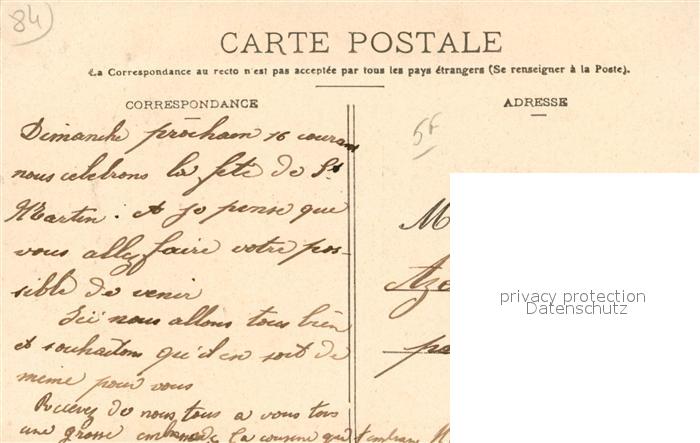 84
CARTE POSTALE
La Correspondance au recto n'est pas acceptée par tous les pays étrangers (Se renseigner à la Poste).
CORRESPONDANCE
ADRESSE
5F
Dimanche prochain 16 courant
nous celebrons la fete de St
Martin. et je pense que
vous allez faire votre pos-
sible de venir
Ici nous allons tous bien
et souhaitons qu'il en soit de
meme pour vous
Recevez de nous tous a vous tous
une grosse embrassade La cousine qui t'embrasse
M
Aze
pa
privacy protection
Datenschutz